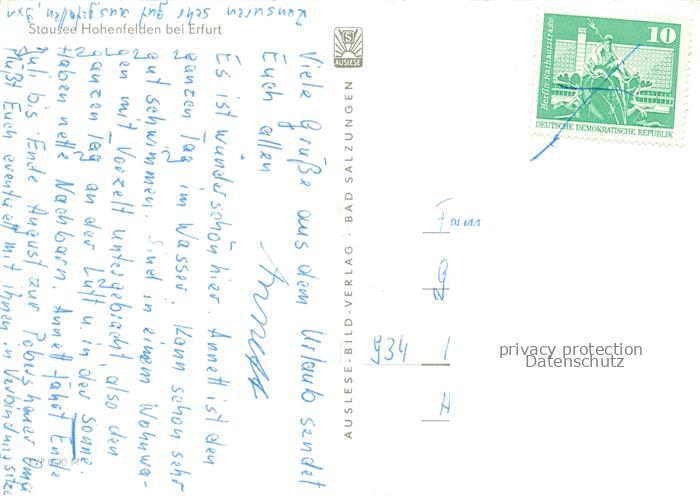 Stausee Hohenfelden bei Erfurt
Viele Grüße aus dem Urlaub sendet
Euch allen
Annett
Es ist wunderschön hier. Annett ist den
ganzen Tag im Wasser, kann schon sehr
gut schwimmen. Sind in einem Wohnwa-
gen mit Vorzelt untergebracht, also den
ganzen Tag an der Luft u. in der Sonne.
Haben nette Nachbarn. Annett fährt Ende
Juli bis Ende August zur Oma
müßt Euch eventuell mit ihnen in Verbindung setzen
Zensuren sehr gut ausgefallen,
AUSLESE
AUSLESE-BILD-VERLAG · BAD SALZUNGEN
10
Berlin, Rathausstraße
DEUTSCHE DEMOKRATISCHE REPUBLIK
Fam
934
privacy protection
Datenschutz